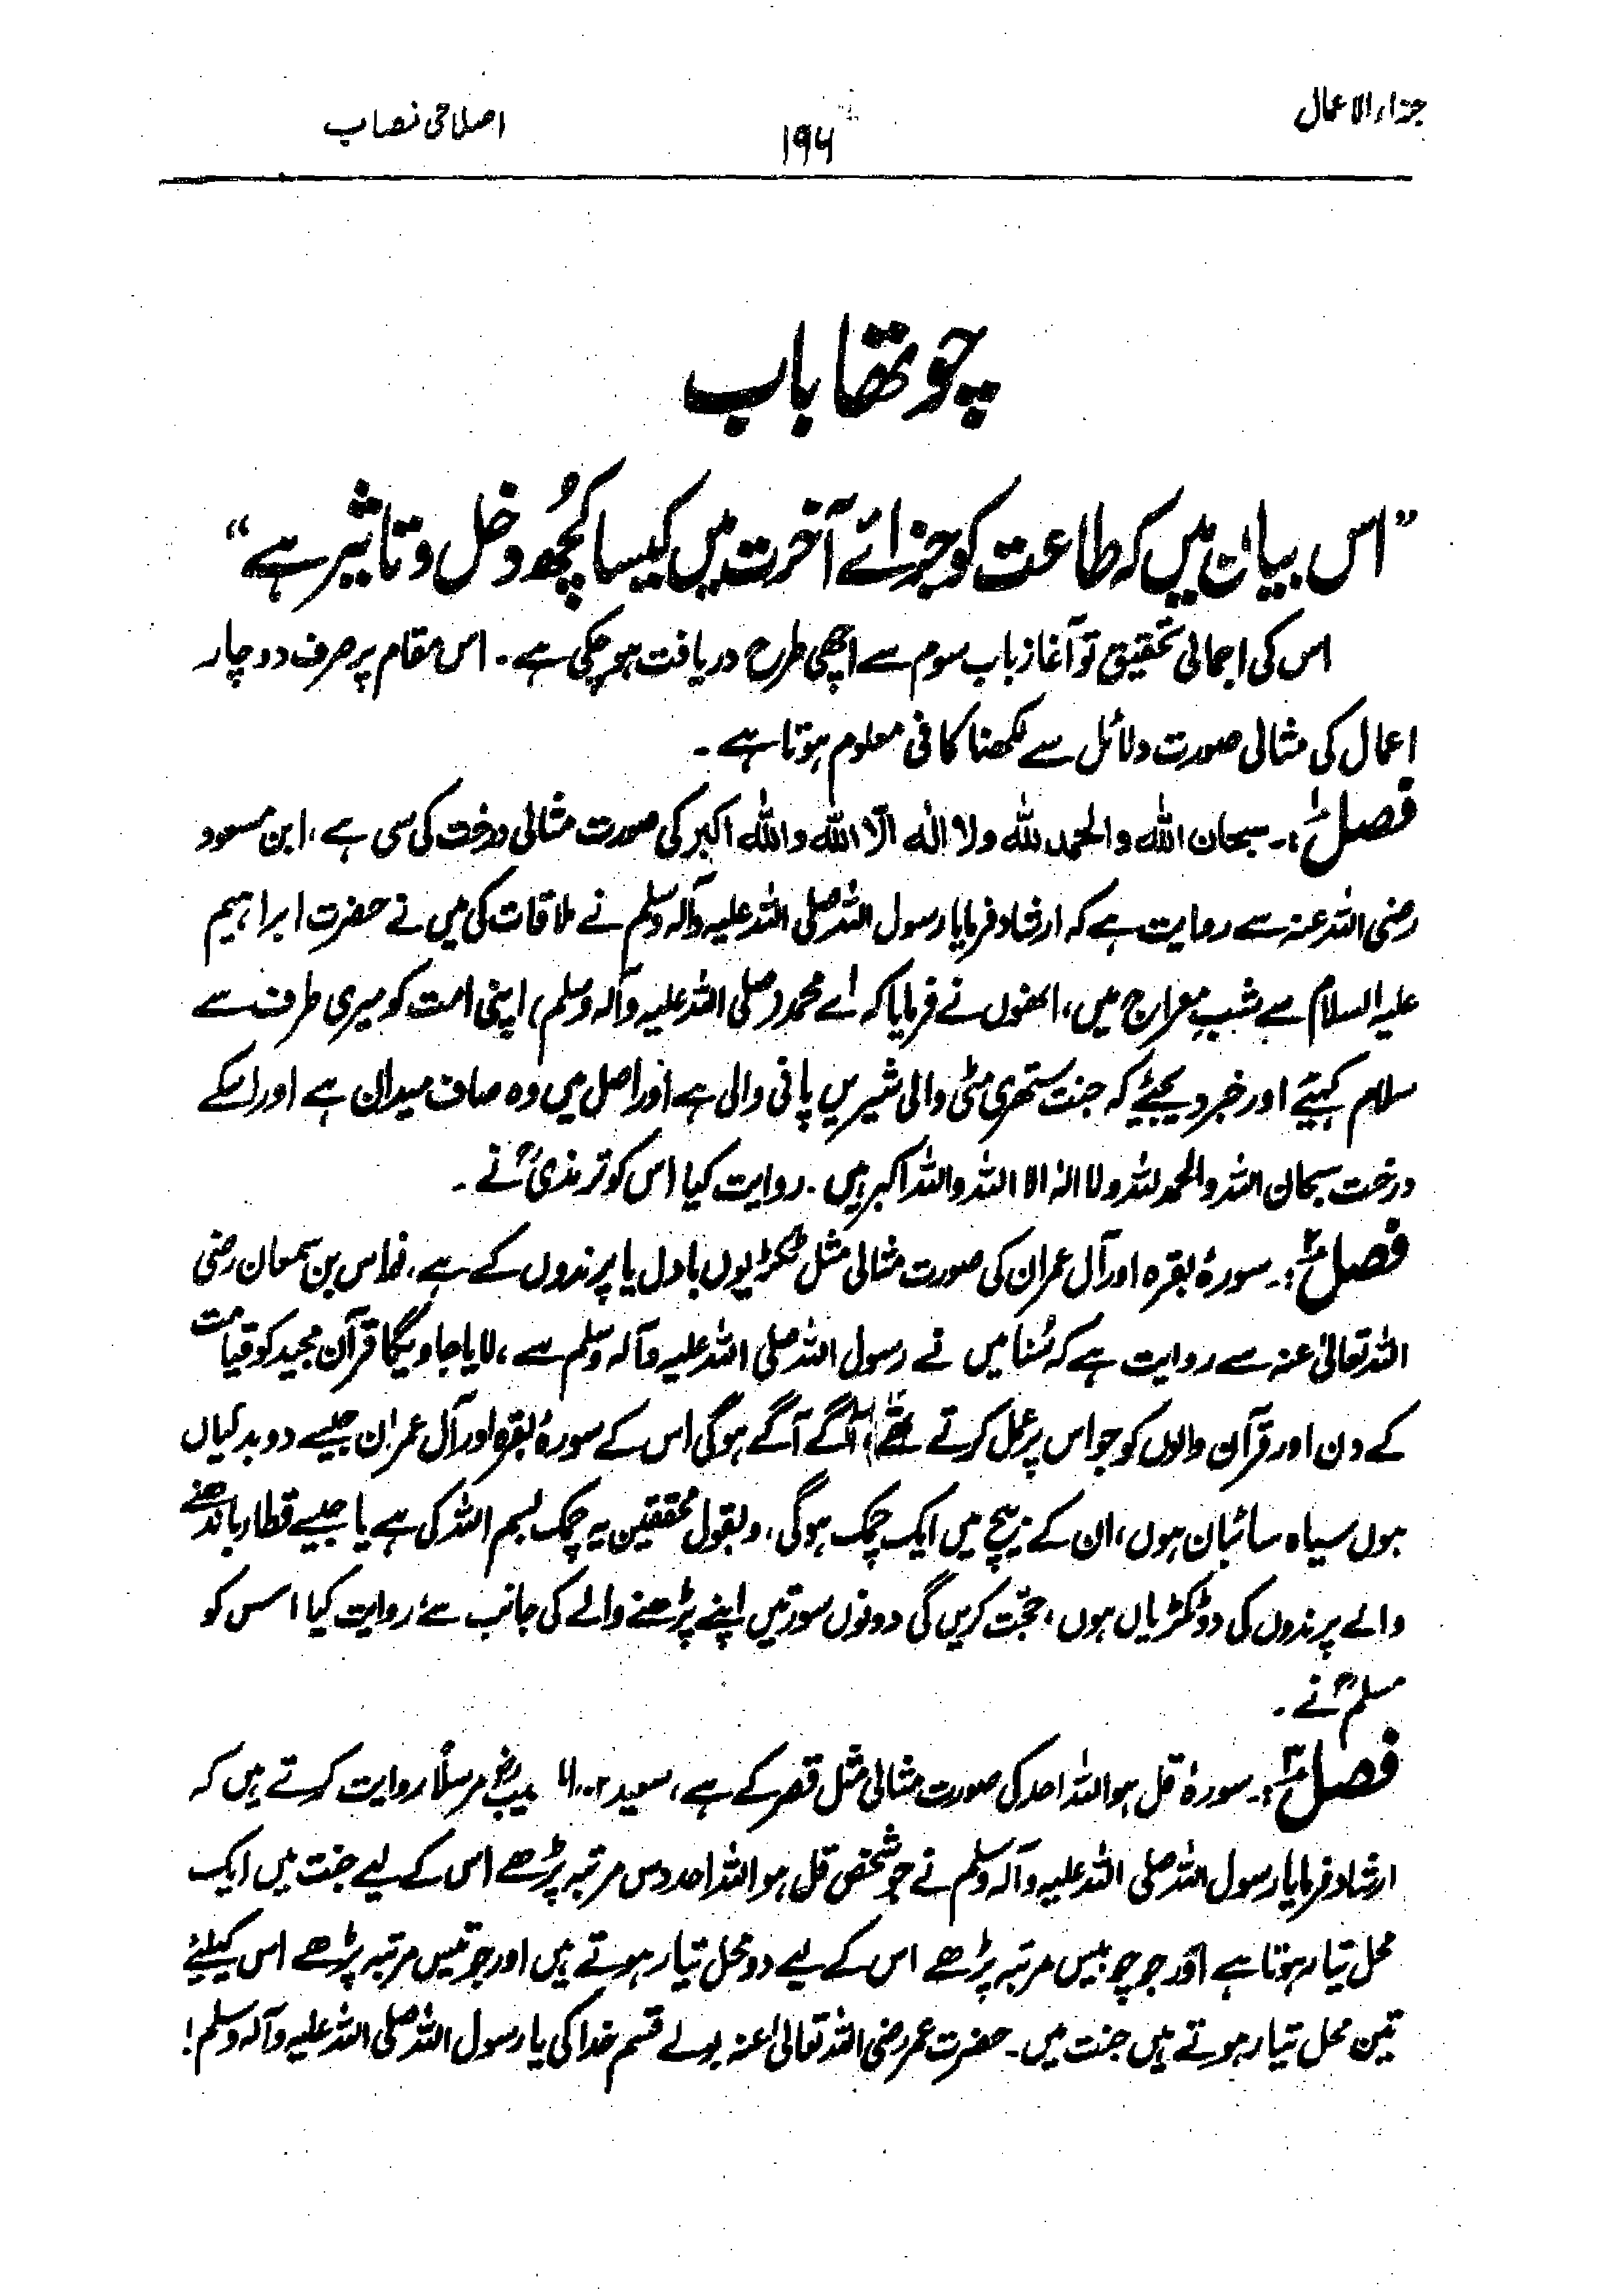 جزاء الاعمال
۱۹۶
اصلاحی نصاب
چوتھا باب
”اس بیان میں کہ طاعت کو جزائے آخرت میں کیسا کچُھ دخل و تاثیر ہے“
اس کی اجمالی تحقیق تو آغاز باب سوم سے اچھی طرح دریافت ہو چکی ہے۔ اس مقام پر صرف دو چار
اعمال کی مثالی صورت دلائل سے لکھنا کافی معلوم ہوتا ہے۔
فصل ۱:۔ سبحان اللہ والحمد للہ ولا الٰہ الّا اللہ واللہ اکبر کی صورت مثالی درخت کی سی ہے، ابن مسعود
رضی اللہ عنہ سے روایت ہے کہ ارشاد فرمایا رسول اللہ صلی اللہ علیہ وآلہ وسلم نے ملاقات کی میں نے حضرت ابراہیم
علیہ السلام سے شبِ معراج میں، انھوں نے فرمایا کہ اے محمد (صلی اللہ علیہ وآلہ وسلم) اپنی امت کو میری طرف سے
سلام کہیئے اور خبر دیجئے کہ جنت ستھری مٹی والی شیریں پانی والی ہے اور اصل میں وہ صاف میدان ہے اور اسکے
درخت سبحان اللہ والحمد للہ ولا الٰہ الا اللہ واللہ اکبر ہیں۔ روایت کیا اس کو ترمذیؒ نے۔
فصل ۲:۔ سورۂ بقرہ اور آل عمران کی صورت مثالی مثل ٹکڑیوں بادل یا پرندوں کے ہے، نواس بن سمعان رضی
اللہ تعالیٰ عنہ سے روایت ہے کہ سُنا میں نے رسول اللہ صلی اللہ علیہ وآلہ وسلم سے، لایا جاویگا قرآن مجید کو قیامت
کے دن اور قرآن والوں کو جو اس پر عمل کرتے تھے، آگے آگے ہوگی اس کے سورۂ بقرہ اور آل عمران جیسے دو بدلیاں
ہوں سیاہ سائبان ہوں، ان کے بیچ میں ایک چمک ہوگی، و بقول محققین یہ چمک بسم اللہ کی ہے یا جیسے قطار باندھنے
والے پرندوں کی دو ٹکڑیاں ہوں، حجّت کریں گی دونوں سورتیں اپنے پڑھنے والے کی جانب سے، روایت کیا اس کو
مسلمؒ نے۔
فصل ۳:۔ سورۂ قل ہو اللہ احد کی صورت مثالی مثل قصر کے ہے، سعید مرسلاً روایت کرتے ہیں کہ
ارشاد فرمایا رسول اللہ صلی اللہ علیہ وآلہ وسلم نے جو شخص قل ہو اللہ احد دس مرتبہ پڑھے اس کے لیے جنت میں ایک
محل تیار ہوتا ہے اور جو بیس مرتبہ پڑھے اس کے لیے دو محل تیار ہوتے ہیں اور جو تیس مرتبہ پڑھے اس کیلئے
تین محل تیار ہوتے ہیں جنت میں۔ حضرت عمر رضی اللہ تعالیٰ عنہ بولے قسم خدا کی یا رسول اللہ صلی اللہ علیہ وآلہ وسلم!